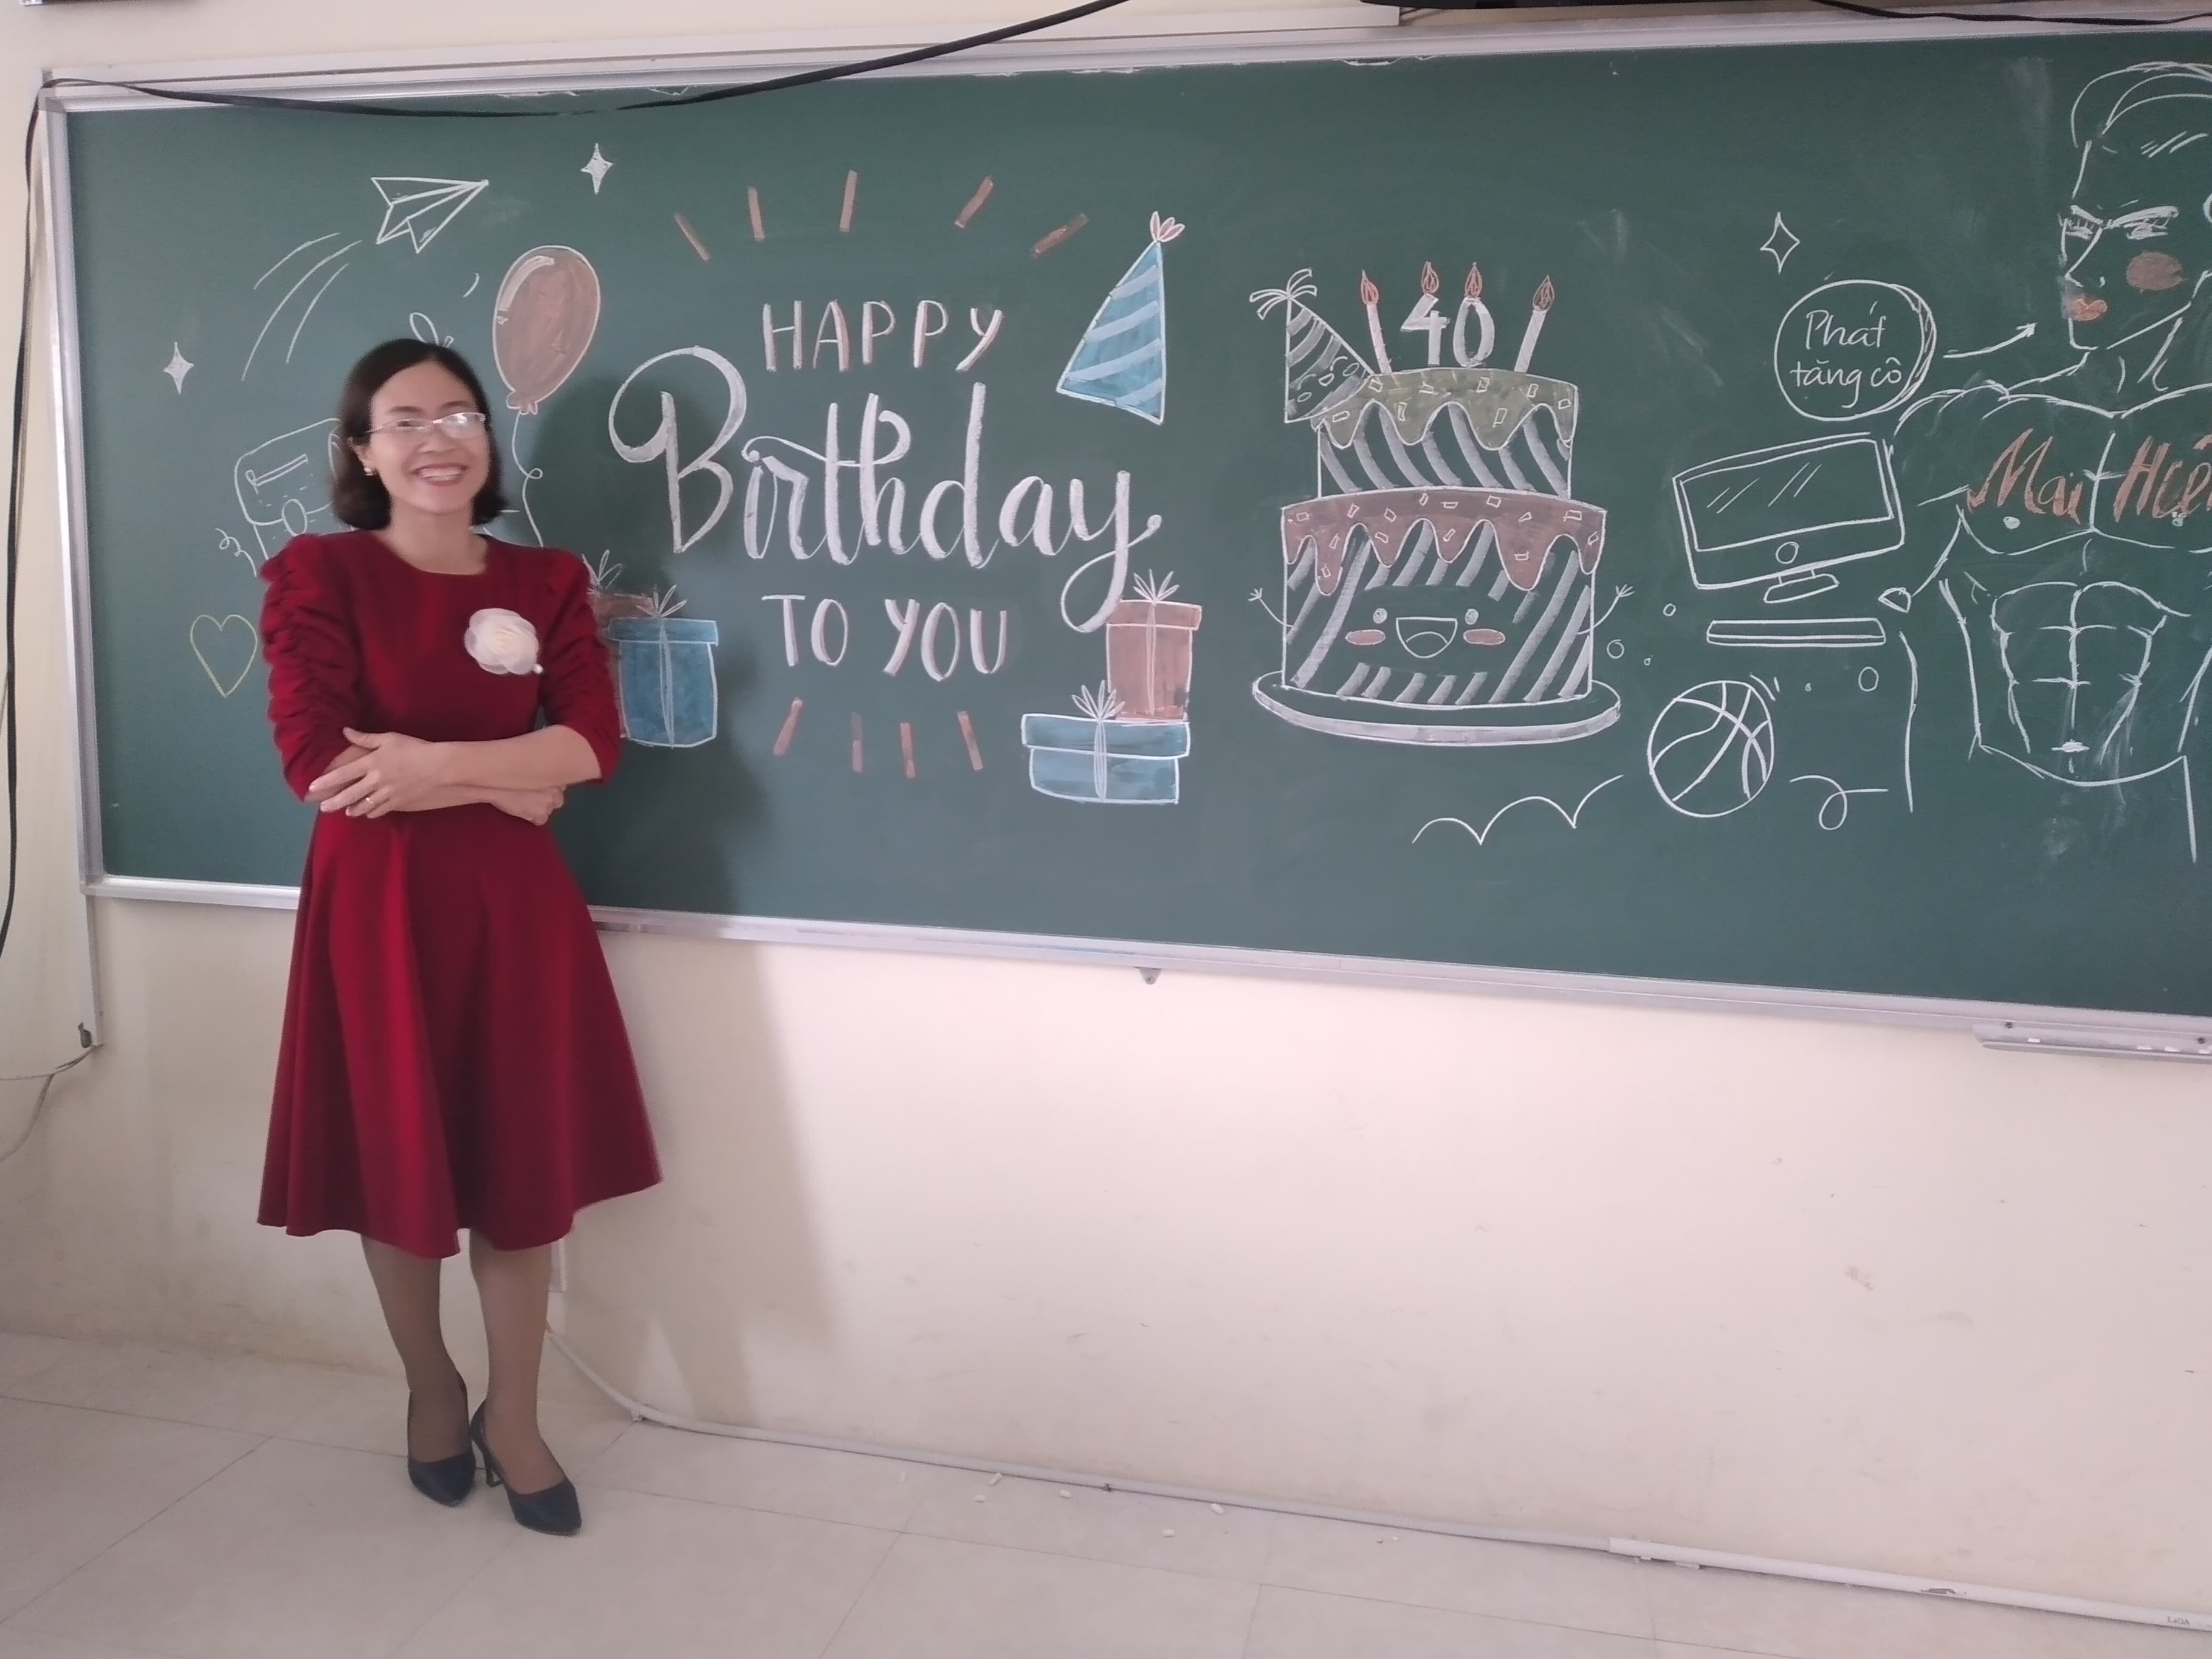 HAPPY
Birthday
TO YOU
40
Phát
tặng cô
Mai
LiOA